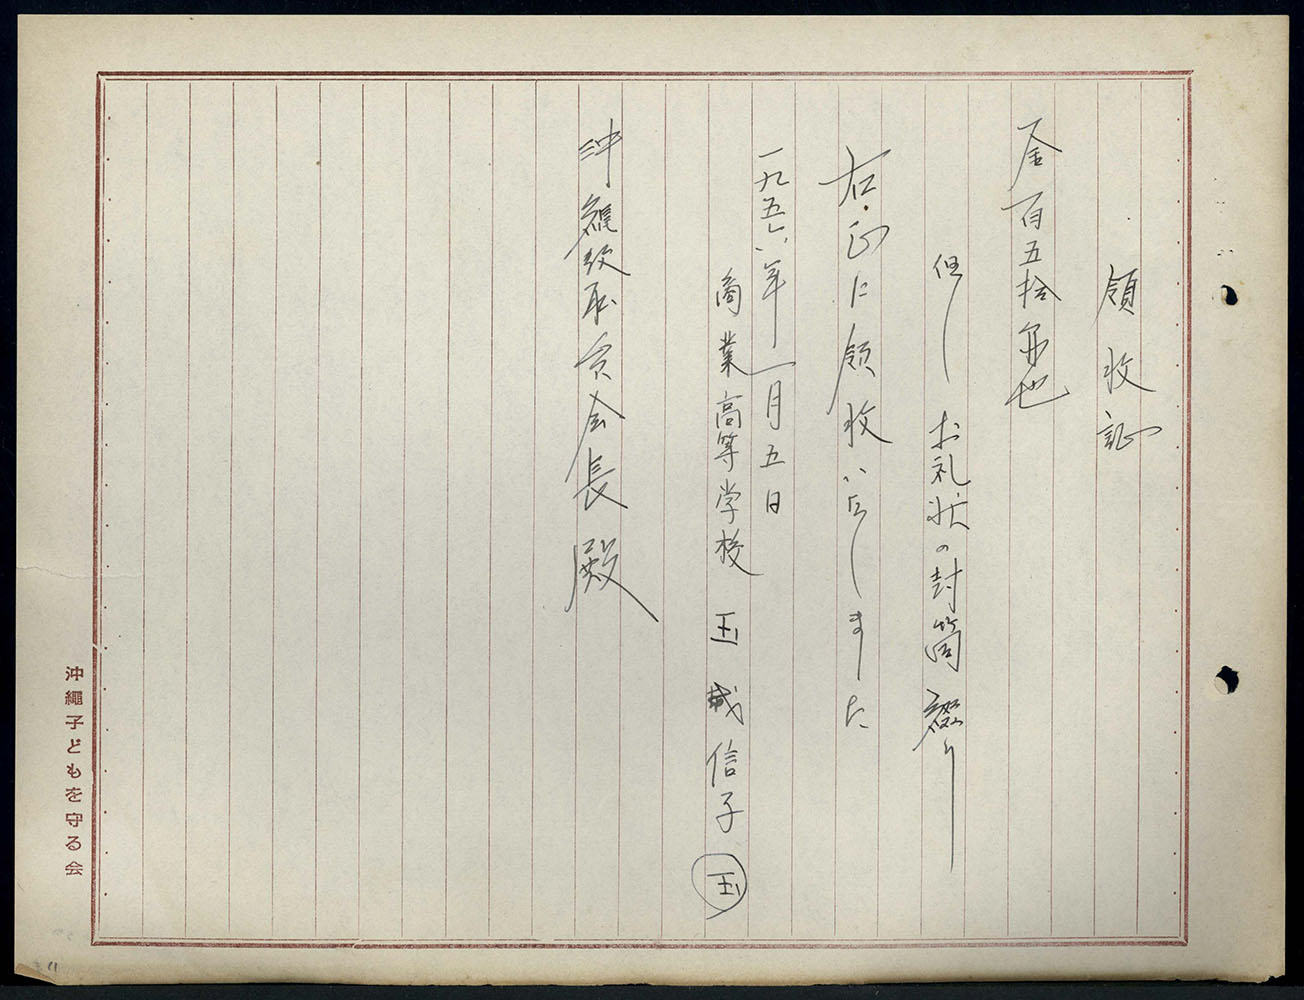 領收証
金百五拾円也
但し お礼状の封筒綴り
右・正に領收いたしました
一九五六年一月五日
商業高等学校 玉城信子 玉
沖縄教職員会長殿
沖繩子どもを守る会